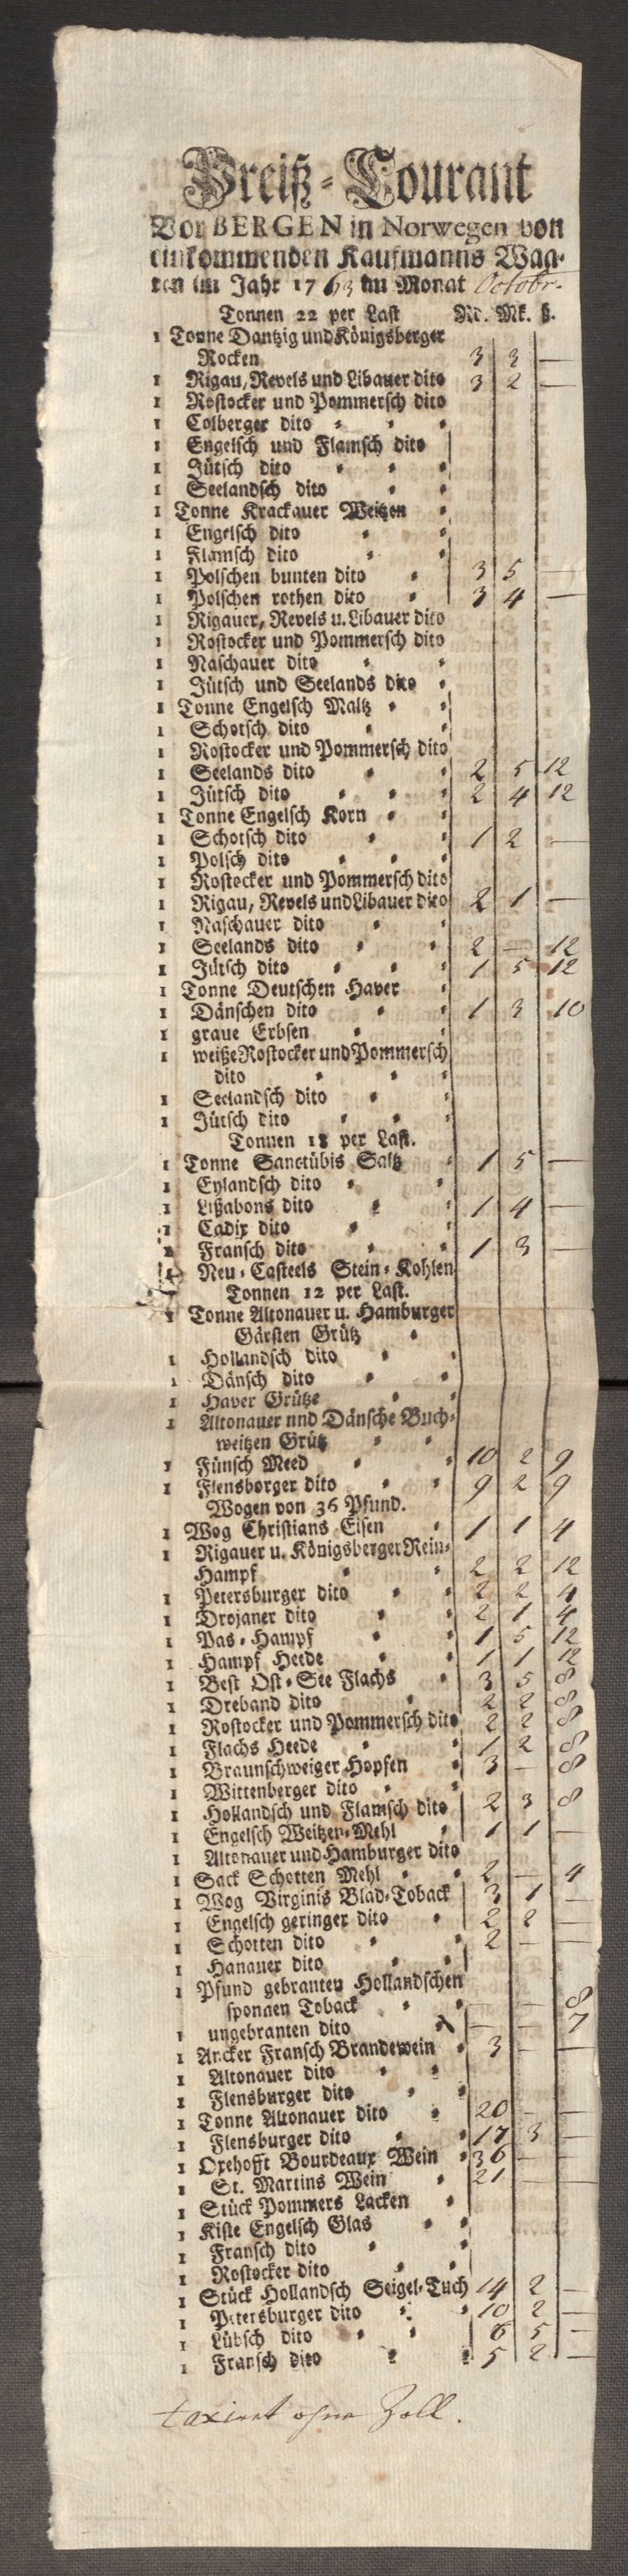 Preiß-Courant
Vor BERGEN in Norwegen von
einkommenden Kaufmanns Waa-
ren im Jahr 1763 im Monat Octobr.
Tonnen 22 per Last Rd. Mk. ß.
1 Tonne Dantzig und Königsberger
Rocken 3 3 —
1 Rigau, Revels und Libauer dito 3 2 —
1 Rostocker und Pommersch dito
1 Colberger dito
1 Engelsch und Flamsch dito
1 Jütsch dito
1 Seelandsch dito
1 Tonne Krackauer Weitzen
1 Engelsch dito
1 Flamsch dito
1 Polschen bunten dito 3 5 —
1 Polschen rothen dito 3 4 —
1 Rigauer, Revels u. Libauer dito
1 Rostocker und Pommersch dito
1 Naschauer dito
1 Jütsch und Seelands dito
1 Tonne Engelsch Maltz
1 Schotsch dito
1 Rostocker und Pommersch dito
1 Seelands dito 2 5 12
1 Jütsch dito 2 4 12
1 Tonne Engelsch Korn
1 Schotsch dito 1 2 —
1 Polsch dito
1 Rostocker und Pommersch dito
1 Rigau, Revels und Libauer dito 2 1 —
1 Naschauer dito
1 Seelands dito 2 — 12
1 Jütsch dito 1 5 12
1 Tonne Deutschen Haver
1 Dänschen dito 1 3 10
1 graue Erbsen
1 weiße Rostocker und Pommersch
dito
1 Seelandsch dito
1 Jütsch dito
Tonnen 18 per Last.
1 Tonne Sanctübis Saltz 1 5 —
1 Eylandsch dito
1 Lißabons dito 1 4 —
1 Cadix dito
1 Fransch dito 1 3 —
1 Neu-Casteels Stein-Kohlen
Tonnen 12 per Last.
1 Tonne Altonauer u. Hamburger
Gärsten Grütz
1 Hollandsch dito
1 Dänsch dito
1 Haver Grütze
1 Altonauer nnd Dänsche Buch-
weitzen Grütz
1 Fünsch Meed 10 2 9
1 Flensborger dito 9 2 9
Wogen von 36 Pfund.
1 Wog Christians Eisen 1 1 4
1 Rigauer u. Königsberger Rein-
Hampf 2 2 12
1 Petersburger dito 2 2 4
1 Drojaner dito 2 1 4
1 Pas-Hampf 1 5 12
1 Hampf Heede 1 1 12
1 Best Ost-See Flachs 3 5 8
1 Dreband dito 2 2 8
1 Rostocker und Pommersch dito 2 2 8
1 Flachs Heede 1 2 8
1 Braunschweiger Hopfen 3 — 8
1 Wittenberger dito
1 Hollandsch und Flamsch dito 2 3 8
1 Engelsch Weitzen-Mehl 1 1 —
1 Altonauer und Hamburger dito
1 Sack Schotten Mehl 2 — 4
1 Wog Virginis Blad-Toback 3 1 —
1 Engelsch geringer dito 2 2 —
1 Schotten dito 2 — —
1 Hanauer dito
1 Pfund gebranten Hollandschen
sponnen Toback — — 8
1 ungebranten dito — — 7
1 Ancker Fransch Brandewein 3 — —
1 Altonauer dito
1 Flensburger dito
1 Tonne Altonauer dito 20 — —
1 Flensburger dito 17 3 —
1 Oxehofft Bourdeaux Wein 36 — —
1 St. Martins Wein 21 — —
1 Stück Pommers Lacken
1 Kiste Engelsch Glas
1 Fransch dito
1 Rostocker dito
1 Stück Hollandsch Seigel-Tuch 14 2 —
1 Petersburger dito 10 2 —
1 Lübsch dito 6 5 —
1 Fransch dito 5 2 —
taxiret ohne Zoll.